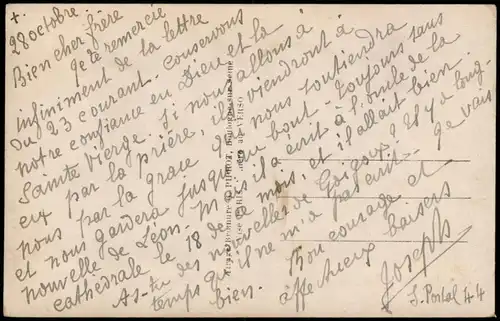 +
28 octobre.
Bien cher frère
Je te remercie
infiniment de la lettre
du 23 courant. Conservons
notre confiance en Dieu et la
Sainte Vierge. Si nous allons à
eux par la prière, ils viendront à
nous par la grâce qui nous soutiendra
et nous gardera jusqu'au bout - Toujours sans
nouvelle de Léon. Mais il a écrit à l'oncle de la
cathédrale le 18 de mois, et il allait bien.
As-tu des nouvelles de Grégoire? Il y a long-
temps qu'il ne m'a pas écrit - Je vais
bien. Bon courage et
affectueux baisers
Joseph
S. Postal 44